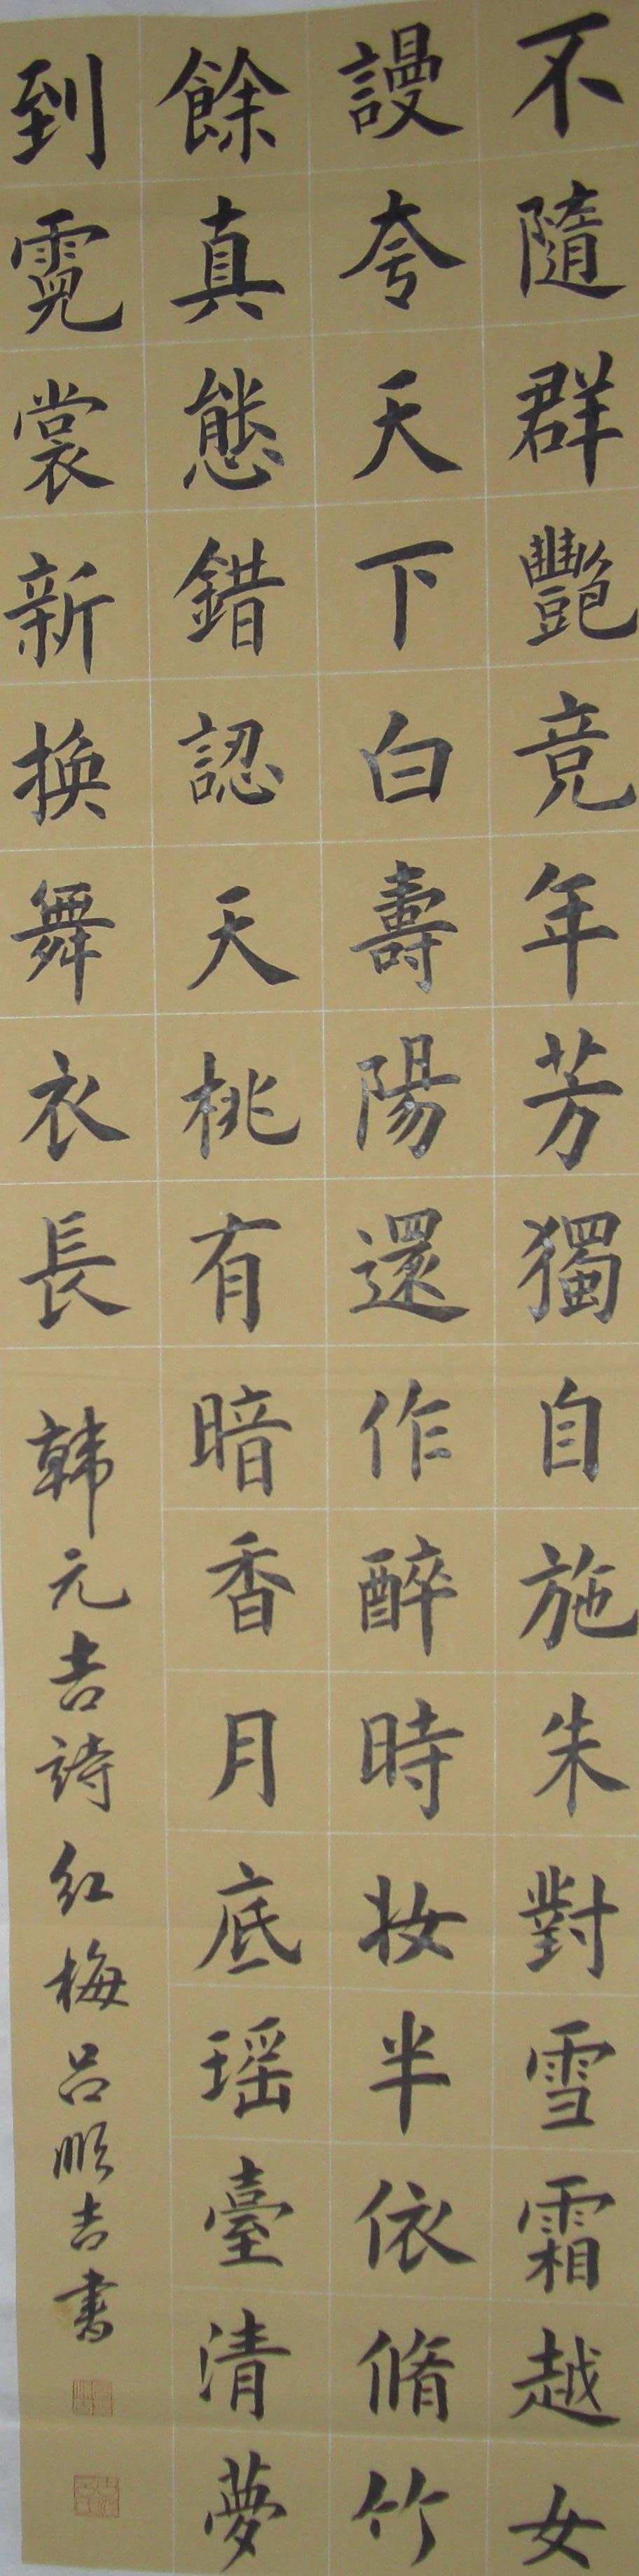 不隨群艷竞年芳獨自施朱對雪霜越女
謾夸天下白壽陽還作醉時妆半依脩竹
餘真態錯認天桃有暗香月底瑶臺清夢
到霓裳新換舞衣長
韩元吉詩红梅吕顺吉書